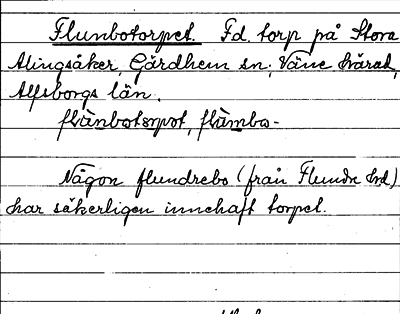 Flunbotorpet. Fd. torp på Stora
Alingsåker, Gärdhem sn, Väne härad,
Älfsborgs län.
flùnbotorpot, flùmbo-
Någon flundrebo (från Flundre hd)
har säkerligen innehaft torpet.